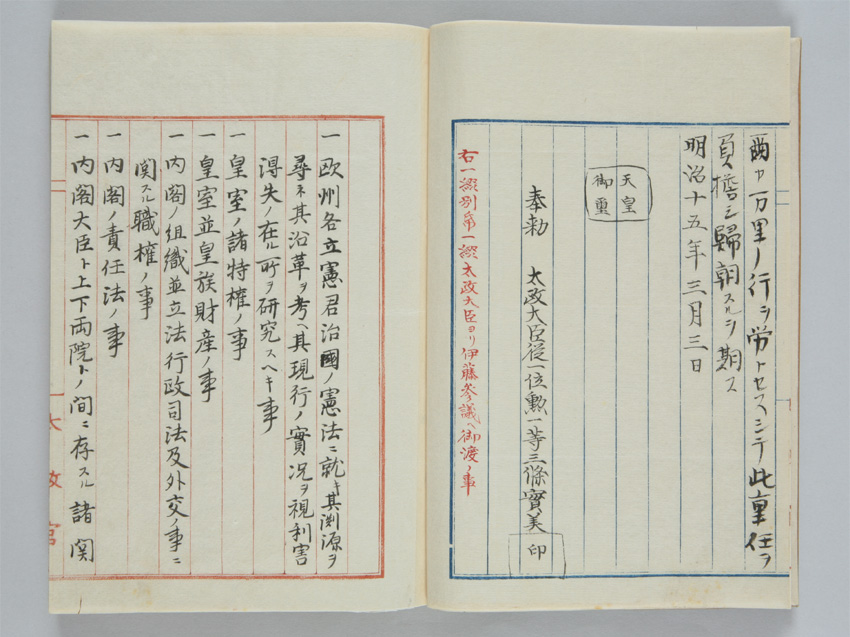 爾カ万里ノ行ヲ労トセスシテ此重任ヲ
負担シ歸朝スルヲ期ス
明治十五年三月三日
天皇
御璽
奉勅 太政大臣從一位勲一等三條實美 印
右一綴別帋一綴太政大臣ヨリ伊藤参議ヘ御渡ノ事
一 欧州各立憲君治國ノ憲法ニ就キ其渕源ヲ
尋ネ其沿革ヲ考ヘ其現行ノ實况ヲ視利害
淂失ノ在ル所ヲ研究スヘキ事
一 皇室ノ諸特権ノ事
一 皇室並皇族財産ノ事
一 内閣ノ組織並立法行政司法及外交ノ事ニ
関スル職権ノ事
一 内閣ノ責任法ノ事
一 内閣大臣ト上下両院トノ間ニ存スル諸関
太政官